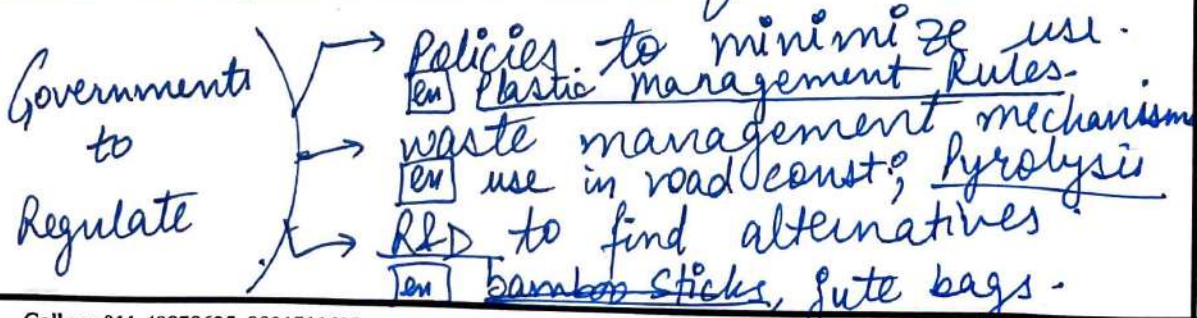 Governments
to
Regulate
Policies to minimize use.
en Plastic management Rules.
waste management mechanism
en use in road const; Pyrolysis
R&D to find alternatives.
en bamboo sticks, jute bags.